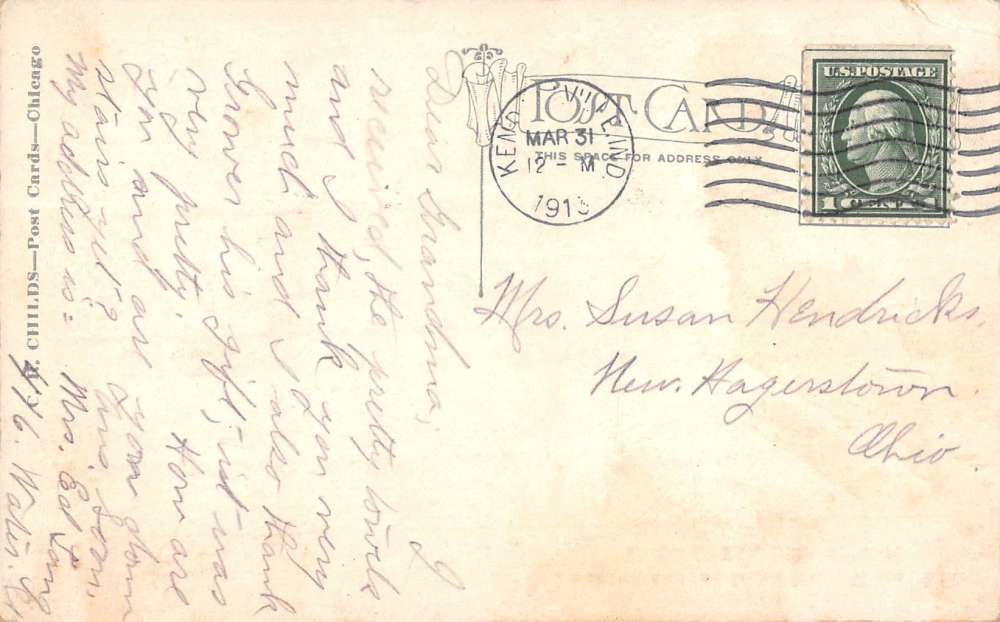 POST CARD
THIS SPACE FOR ADDRESS ONLY
KEN IND
MAR 31
12-M
1913
U.S. POSTAGE
1 CENT
Mrs. Susan Hendricks.
New. Hagerstown.
Ohio.
Dear Grandma; I
received, the pretty towels
and I thank you very
much and I also thank
Grover his gift, it was
very pretty. How are
you and are you down
stairs yet?
My address is: Mrs. Ed
416. Water. St
CHILDS—Post Cards—Chicago